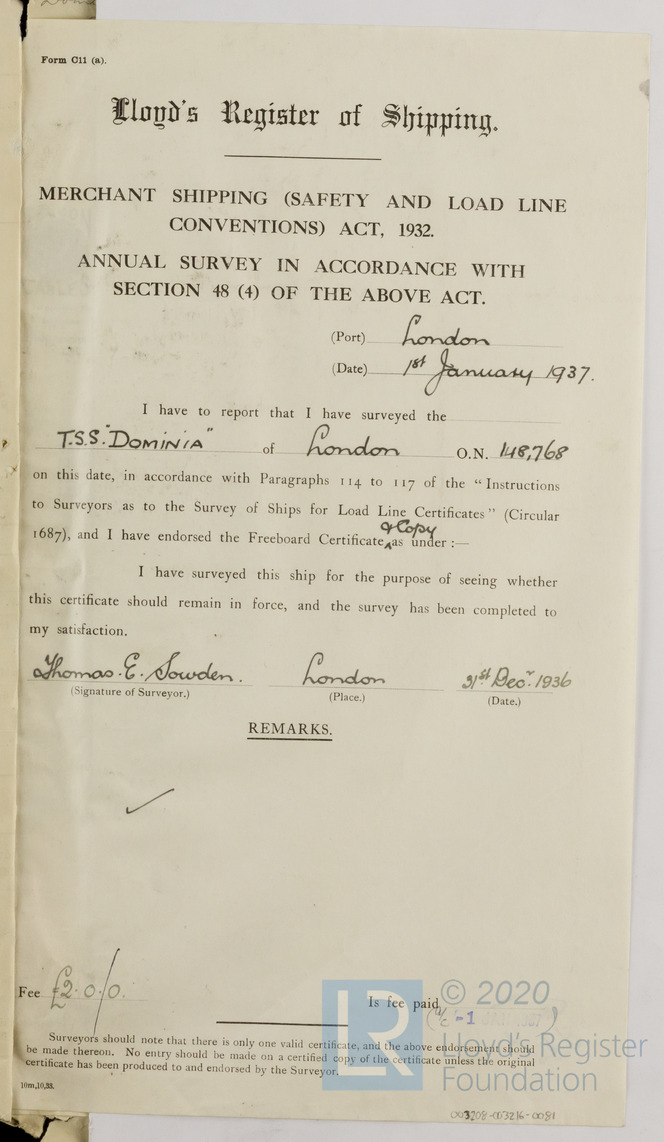 Form C11 (a).
Lloyd's Register of Shipping.
MERCHANT SHIPPING (SAFETY AND LOAD LINE
CONVENTIONS) ACT, 1932.
ANNUAL SURVEY IN ACCORDANCE WITH
SECTION 48 (4) OF THE ABOVE ACT.
(Port) London
(Date) 1st January 1937.
I have to report that I have surveyed the
T.S.S. "DOMINIA" of London O.N. 148,768
on this date, in accordance with Paragraphs 114 to 117 of the "Instructions
to Surveyors as to the Survey of Ships for Load Line Certificates" (Circular
& Copy
1687), and I have endorsed the Freeboard Certificate as under :—
I have surveyed this ship for the purpose of seeing whether
this certificate should remain in force, and the survey has been completed to
my satisfaction.
Thomas. E. Sowden. London 31st Decr. 1936
(Signature of Surveyor.) (Place.) (Date.)
REMARKS.
Fee £2.0/0. Is fee paid
© 2020
Lloyd's Register
Foundation
Surveyors should note that there is only one valid certificate, and the above endorsement should
be made thereon. No entry should be made on a certified copy of the certificate unless the original
certificate has been produced to and endorsed by the Surveyor.
10m,10,33.
003208-003216-0081